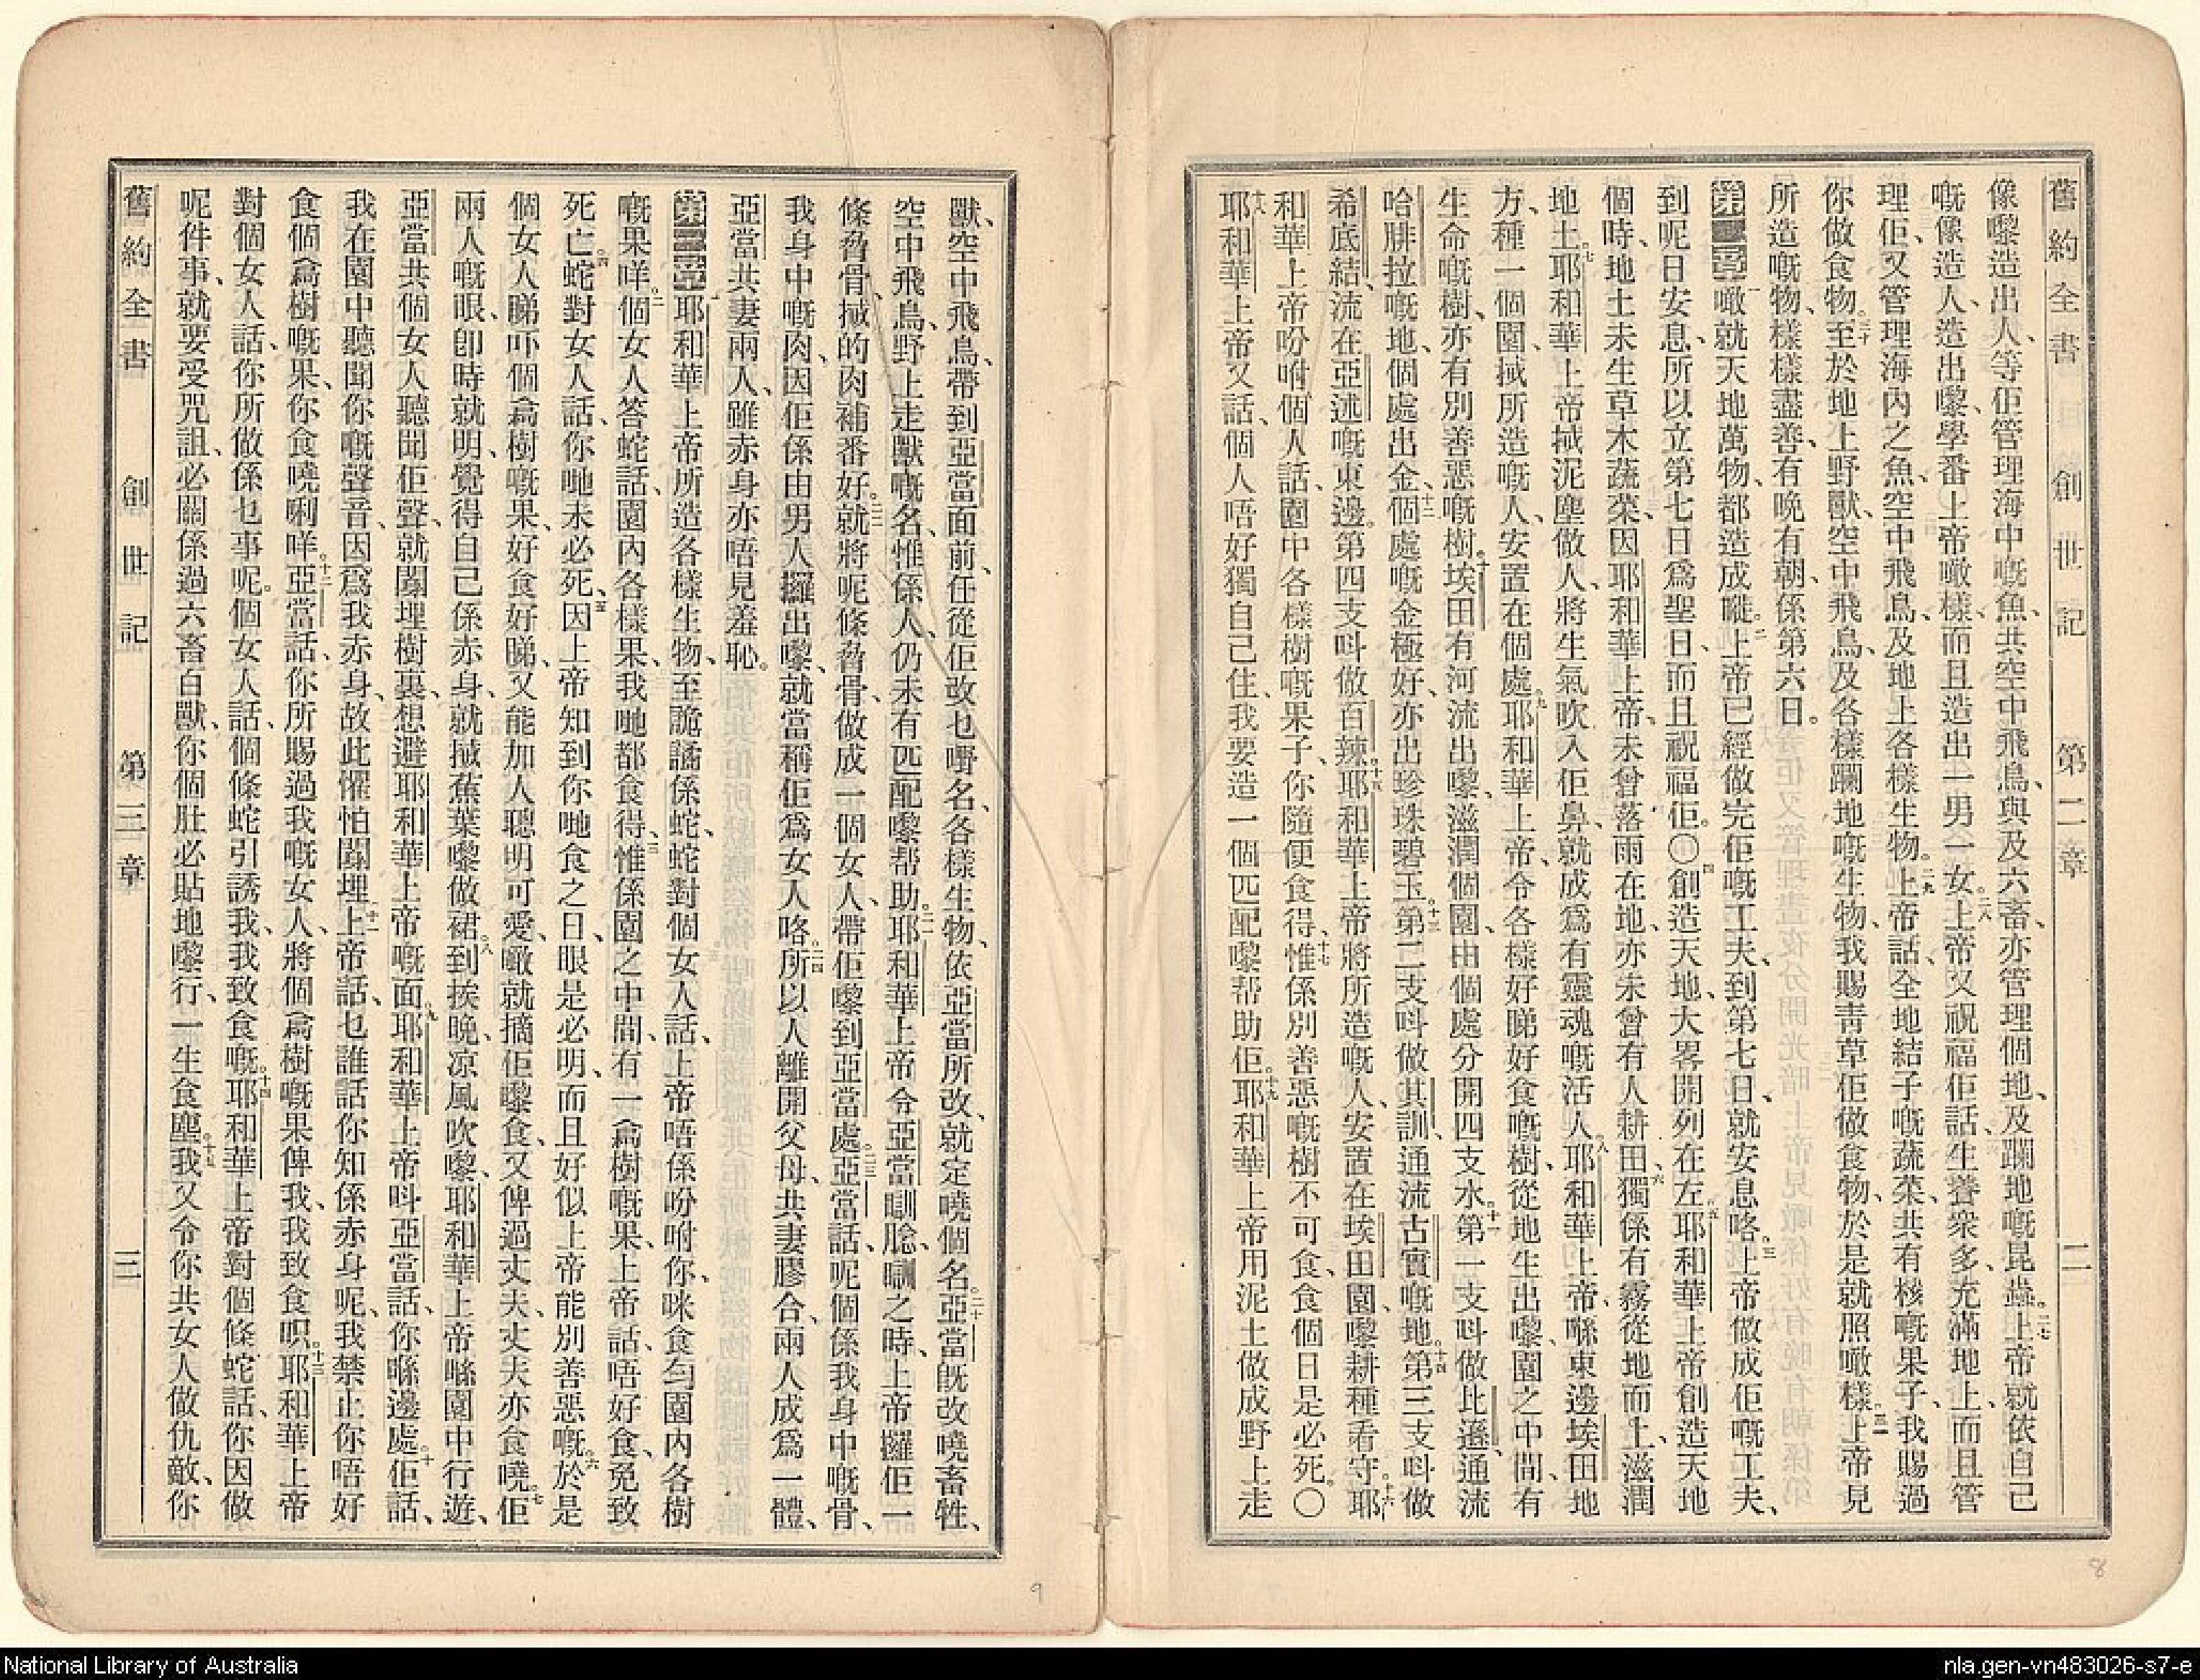 舊約全書 創世記 第二章 二
像嚟造出人、等佢管理海中嘅魚、共空中飛鳥、與及六畜、亦管理個地、及躝地嘅昆蟲。二七上帝就依自己
嘅像造人、造出嚟、學番上帝噉樣、而且造出一男一女。二八上帝又祝福佢話、生養衆多、充滿地上、而且管
理佢、又管理海內之魚、空中飛鳥、及地上各樣生物。二九上帝話、全地結子嘅蔬菜、共有核嘅果子、我賜過
你做食物。三十至於地上野獸、空中飛鳥、及各樣躝地嘅生物、我賜青草佢做食物、於是就照噉樣。三一上帝見
所造嘅物、樣樣盡善、有晚有朝、係第六日。
第二章 一噉就天地萬物、都造成嘥。二上帝已經做完佢嘅工夫、到第七日、就安息咯。三上帝做成佢嘅工夫、
到呢日安息、所以立第七日爲聖日、而且祝福佢。〇四創造天地、大畧開列在左。五耶和華上帝創造天地
個時、地土未生草木蔬菜、因耶和華上帝、未曾落雨在地、亦未曾有人耕田、六獨係有霧從地而上、滋潤
地土。七耶和華上帝搣泥塵做人、將生氣吹入佢鼻、就成爲有靈魂嘅活人。八耶和華上帝、喺東邊埃田地
方、種一個園、搣所造嘅人、安置在個處。九耶和華上帝、令各樣好睇好食嘅樹、從地生出嚟、園之中間、有
生命嘅樹、亦有別善惡嘅樹。十埃田有河流出嚟、滋潤個園、由個處分開四支水。十一第一支呌做比遜、通流
哈腓拉嘅地、個處出金、十二個處嘅金極好、亦出珍珠碧玉。十三第二支呌做其訓、通流古實嘅地。十四第三支呌做
希底結、流在亞述嘅東邊。第四支呌做百辣。十五耶和華上帝將所造嘅人、安置在埃田園、嚟耕種看守。十六耶
和華上帝吩咐個人話、園中各樣樹嘅果子、你隨便食得、十七惟係別善惡嘅樹不可食、食個日是必死。〇
十八耶和華上帝又話、個人唔好獨自己住、我要造一個匹配嚟帮助佢。十九耶和華上帝用泥土做成野上走
獸、空中飛鳥、帶到亞當面前、任從佢改乜嘢名、各樣生物、依亞當所改、就定曉個名。二十亞當旣改曉畜牲、
空中飛鳥、野上走獸嘅名、惟係人、仍未有匹配嚟帮助。二一耶和華上帝令亞當瞓腍、瞓之時、上帝攞佢一
條脅骨、搣的肉補番好。二二就將呢條脅骨、做成一個女人、帶佢嚟到亞當處。二三亞當話、呢個係我身中嘅骨、
我身中嘅肉、因佢係由男人攞出嚟、就當稱佢爲女人咯。二四所以人離開父母、共妻膠合、兩人成爲一體、
亞當共妻兩人、雖赤身亦唔見羞恥。
第三章 一耶和華上帝所造各樣生物、至詭譎係蛇、蛇對個女人話、上帝唔係吩咐你、咪食勻園內各樹
嘅果咩。二個女人答蛇話、園內各樣果、我哋都食得、三惟係園之中間、有一樖樹嘅果、上帝話、唔好食、免致
死亡。四蛇對女人話、你哋未必死、五因上帝知到你哋食之日、眼是必明、而且好似上帝能別善惡嘅。六於是
個女人睇吓個樖樹嘅果、好食好睇、又能加人聰明可愛、噉就摘佢嚟食、又俾過丈夫、丈夫亦食曉。七佢
兩人嘅眼、卽時就明、覺得自己係赤身、就搣蕉葉嚟做裙。八到挨晚、凉風吹嚟、耶和華上帝喺園中行遊、
亞當共個女人聽聞佢聲、就閣埋樹裏、想避耶和華上帝嘅面。九耶和華上帝呌亞當話、你喺邊處。十佢話、
我在園中聽聞你嘅聲音、因爲我赤身、故此懼怕閣埋。十一上帝話、乜誰話你知係赤身呢、我禁止你唔好
食個樖樹嘅果、你食曉唎咩。十二亞當話、你所賜過我嘅女人、將個樖樹嘅果俾我、我致食呮。十三耶和華上帝
對個女人話、你所做係乜事呢。個女人話、個條蛇引誘我、我致食嘅。十四耶和華上帝對個條蛇話、你因做
呢件事、就要受咒詛、必關係過六畜百獸、你個肚必貼地嚟行、一生食塵。十五我又令你共女人做仇敵、你
舊約全書 創世記 第三章 三
9
8
National Library of Australia
nla.gen-vn483026-s7-e